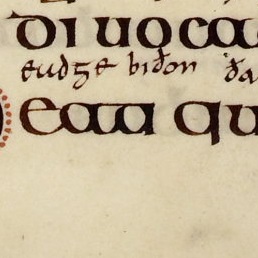 di uoca
eudge bidon ða
eati qu